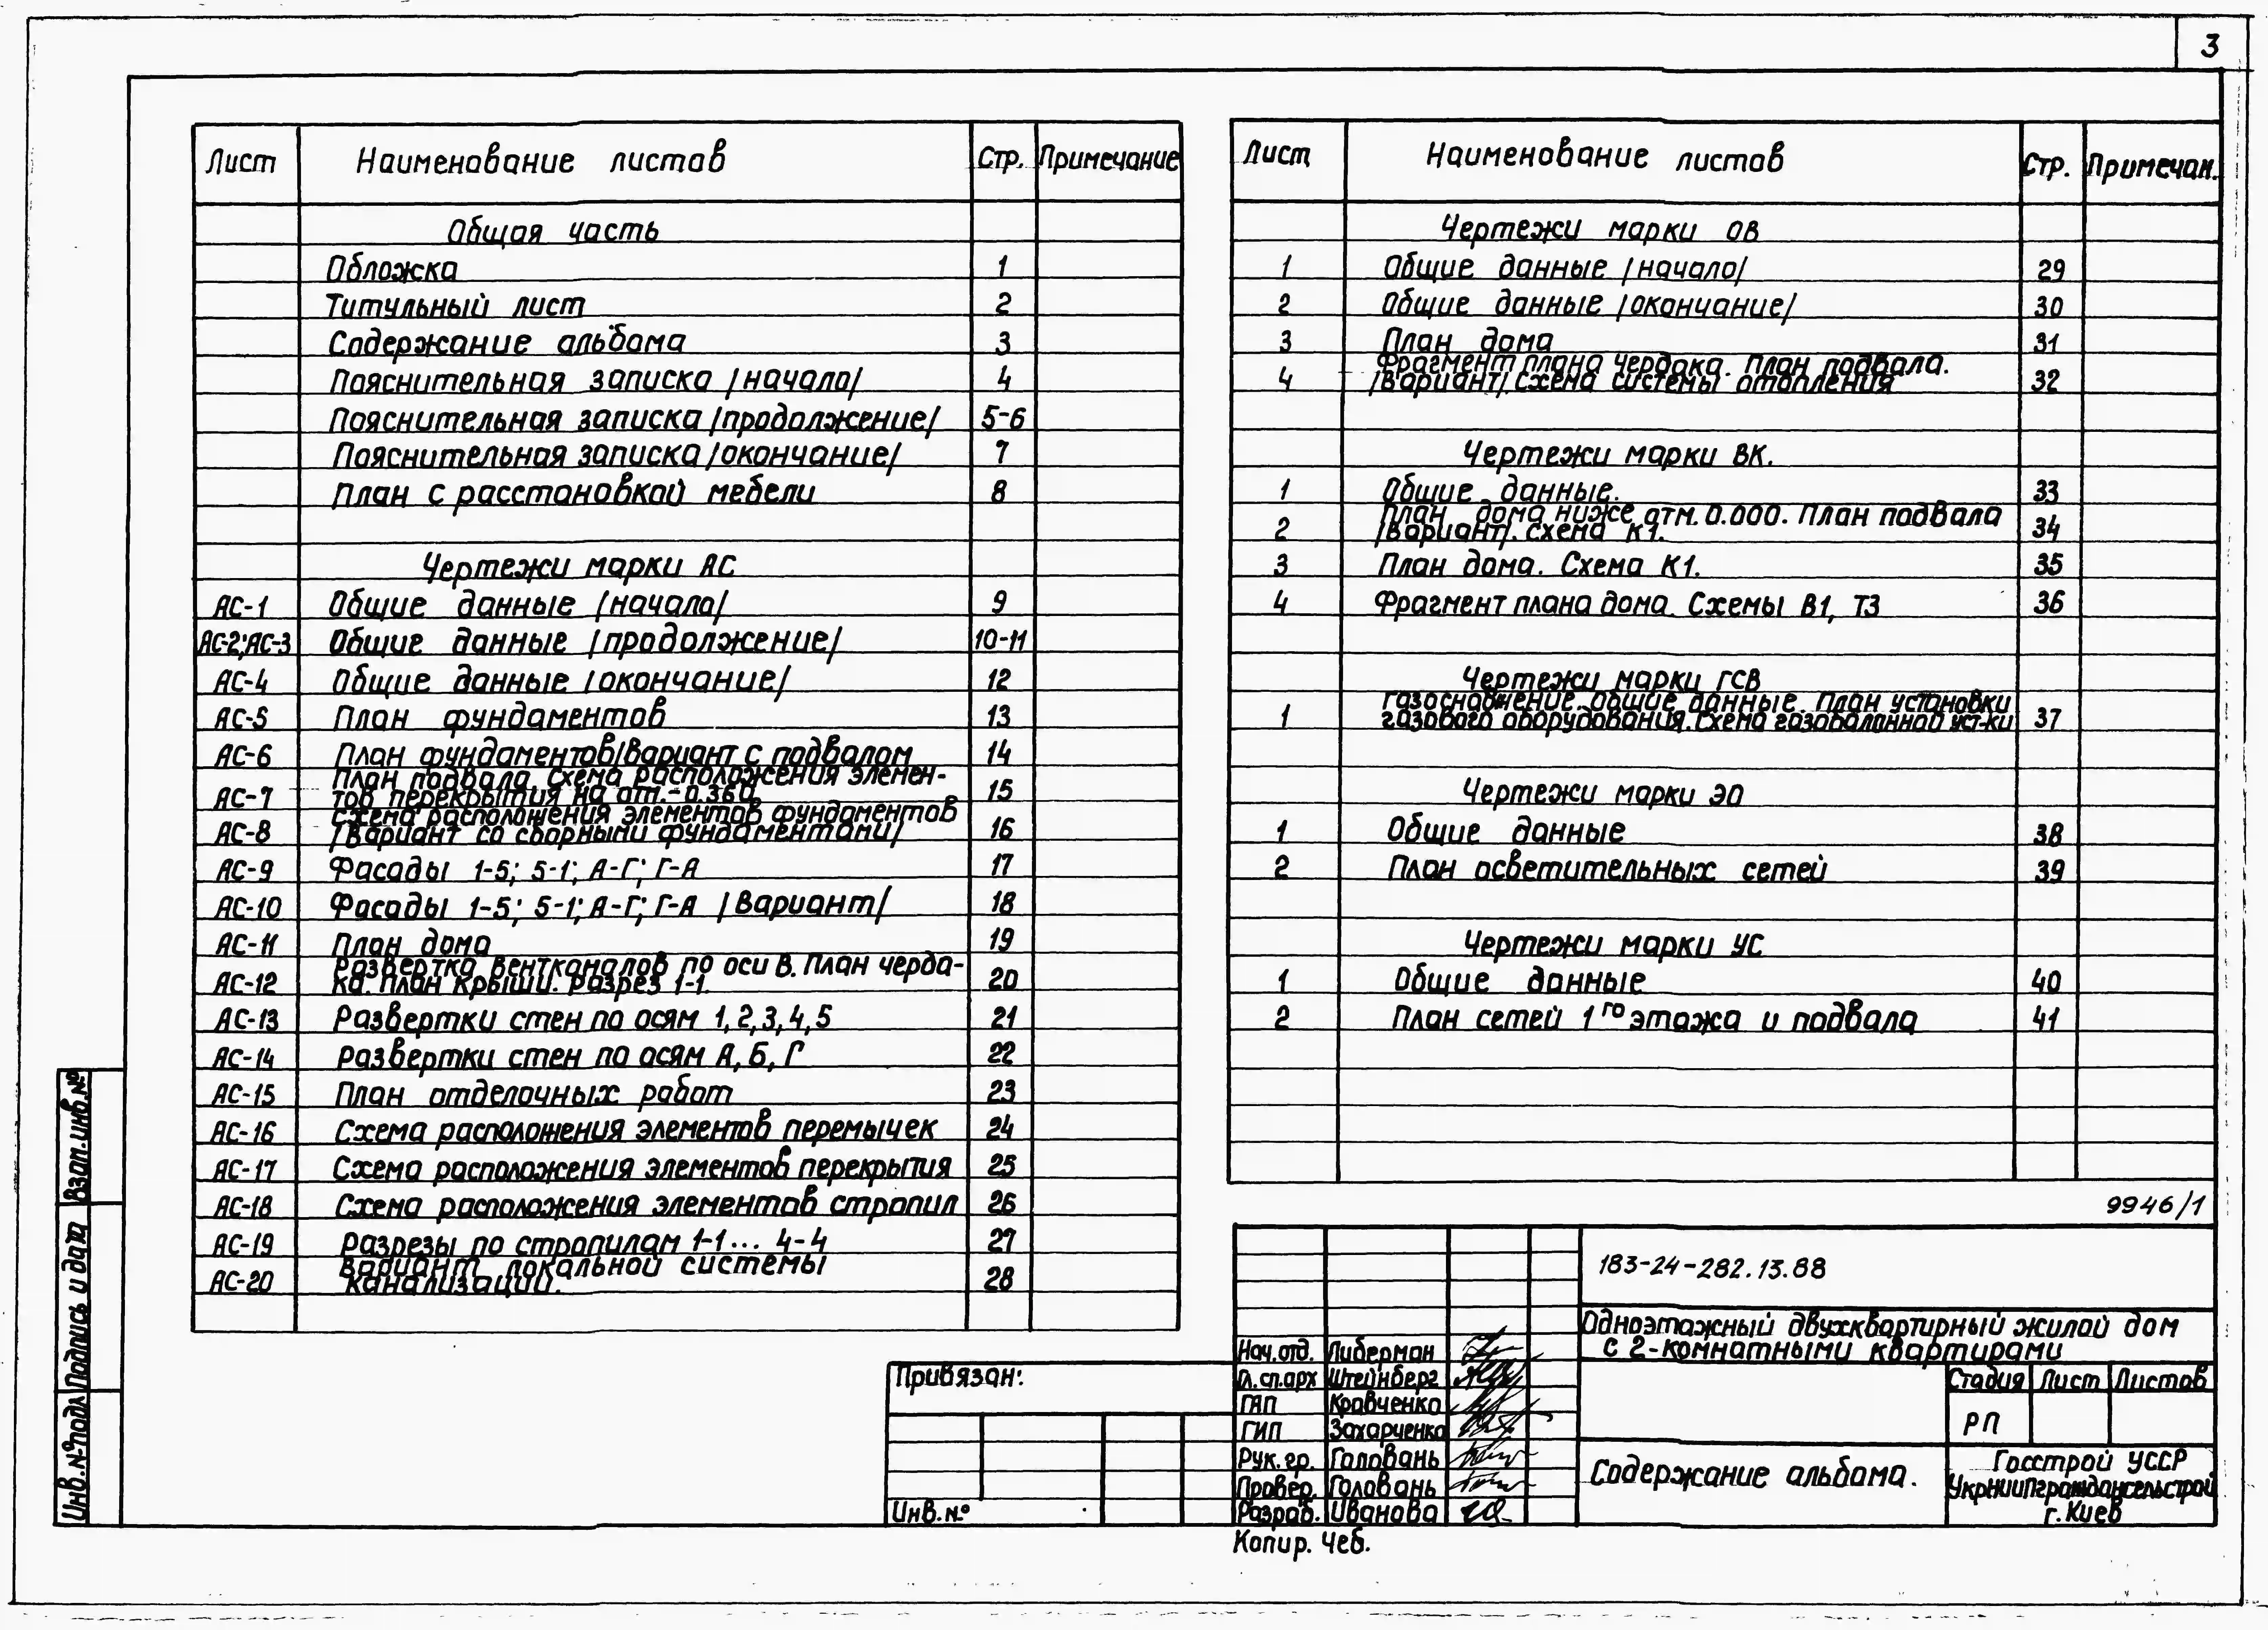 3
Лист Наименование листов Стр. Примечание
Общая часть
Обложка 1
Титульный лист 2
Содержание альбома 3
Пояснительная записка /начало/ 4
Пояснительная записка /продолжение/ 5-6
Пояснительная записка /окончание/ 7
План с расстановкой мебели 8
Чертежи марки АС
АС-1 Общие данные /начало/ 9
АС-2; АС-3 Общие данные /продолжение/ 10-11
АС-4 Общие данные /окончание/ 12
АС-5 План фундаментов 13
АС-6 План фундаментов/вариант с подвалом 14
План подвала. Схема расположения элемен-
АС-7 тов перекрытия на отм.-0.360 15
Схема расположения элементов фундаментов
АС-8 /Вариант со сборными фундаментами/ 16
АС-9 Фасады 1-5; 5-1; А-Г; Г-А 17
АС-10 Фасады 1-5; 5-1; А-Г; Г-А /Вариант/ 18
АС-11 План дома 19
Развертка вентканалов по оси В. План черда-
АС-12 ка. План крыши. Разрез 1-1. 20
АС-13 Развертки стен по осям 1,2,3,4,5 21
АС-14 Развертки стен по осям А, Б, Г 22
АС-15 План отделочных работ 23
АС-16 Схема расположения элементов перемычек 24
АС-17 Схема расположения элементов перекрытия 25
АС-18 Схема расположения элементов стропил 26
АС-19 Разрезы по стропилам 1-1... 4-4 27
Вариант локальной системы
АС-20 канализации. 28
Лист Наименование листов Стр. Примечан.
Чертежи марки ОВ
1 Общие данные /начало/ 29
2 Общие данные /окончание/ 30
3 План дома 31
Фрагмент плана чердака. План подвала.
4 /Вариант/. Схема системы отопления 32
Чертежи марки ВК.
1 Общие данные. 33
План дома ниже отм. 0.000. План подвала
2 /Вариант/. Схема К1. 34
3 План дома. Схема К1. 35
4 Фрагмент плана дома. Схемы В1, Т3 36
Чертежи марки ГСВ
Газоснабжение. Общие данные. План установки
1 газового оборудования. Схема газобалонной уст-ки 37
Чертежи марки ЭО
1 Общие данные 38
2 План осветительных сетей 39
Чертежи марки УС
1 Общие данные 40
2 План сетей 1го этажа и подвала 41
9946/1
183-24-282.13.88
Одноэтажный двухквартирный жилой дом
с 2-комнатными квартирами
Привязан:
Инв.№
Нач.отд. Либерман
Гл.сп.арх Штейнберг
ГАП Кравченко
ГИП Захарченко
Рук.гр. Головань
Провер. Головань
Разраб. Иванова
Стадия Лист Листов
РП
Содержание альбома.
Госстрой УССР
УкрНИИПграждансельстрой
г.Киев
Копир. Чеб.
Взам.инв.№
Подпись и дата
Инв.№подл